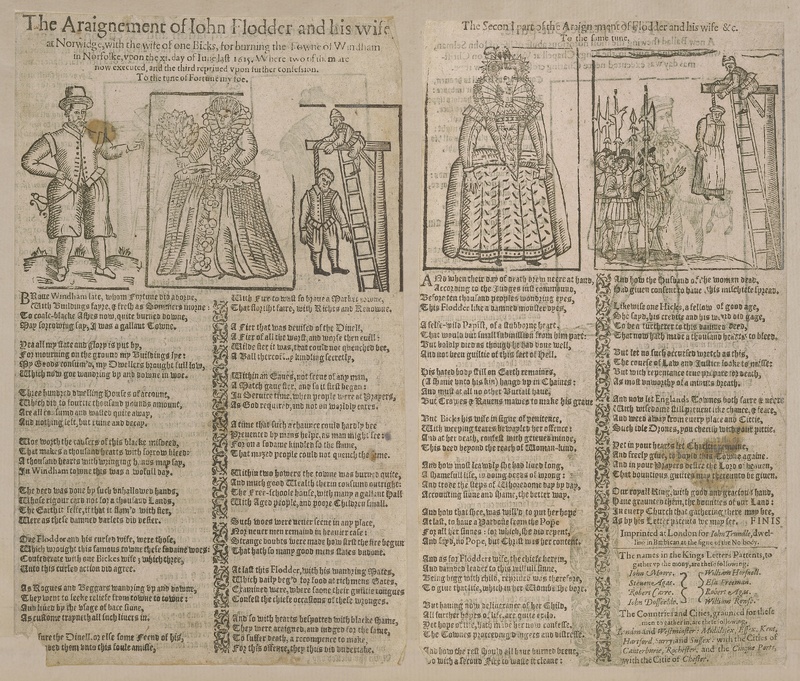 The Araignement of Iohn Flodder and his wife
at Norwidge, with the wife of one Bicks, for burning the Towne of Windham
in Norfolke, vpon the xi. day of Iune last 1615. Where two of them are
now executed, and the third repriued vpon further confession.
To the tune of Fortune my foe.
BRaue Windham late, whom Fortune did adorne,
With Buildings fayre, &
To coale-blacke Ashes now, quite burned downe,
May sorrowing say, I was a gallant Towne.
Yea all my state and glory is put by,
For mourning on the ground my Buildings lye:
My Goods consum'd, my Dwellers brought full low,
Which now goe wandring vp and downe in woe.
Three hundred dwelling Houses of account,
Which did to fourtie thousand pounds amount,
Are all consum'd and wasted quite away,
And nothing left, but ruine and decay.
Woe worth the causers of this blacke misdeed,
That makes a thousand hearts with sorrow bleed:
A thousand hearts with wringing hands may say,
In Windham towne this was a wofull day.
The deed was done by such vnhallowed hands,
Whose rigour card not for a thousand Lands,
The Earth it selfe, if that it flam'd with fire,
Were as these damned varlets did desire.
One Flodder and his cursed wife, were those,
Which wrought this famous towne these sodaine woes:
Confederate with one Bickes wife; which three,
Unto this cursey action did agree.
As Rogues and Beggars wandring vp and downe,
They went to seeke reliefe from towne to towne:
And liued by the vsage of base sinne,
As custome trayneth all such liuers in.
sure the Diuell, or else some Feend of his,
them vnto this foule amisse,
With Fire to wast so braue a Market towne,
That florisht faire, with Riches and Renowne.
A Fire that was deuised of the Diuell,
A Fire of all the worst, and worse then euill:
Wilde fire it was, that could not quenched bee,
A Ball thereof kindling secretly,
Within an Eaues, not seene of any man,
A Match gaue fire, and so it first began:
In Seruice time, when people were at Prayers,
As God required, and not on worldly cares.
A time that such a chaunce could hardly bee
Preuented by mans helpe, as man might see:
For on a sodaine kindled so the flame,
That mazed people could not quench the same.
Within two howers the towne was burned quite,
And much good Wealth therein consum outright:
The Free-schoole house, with many a gallant Hall
With Aged people, and poore Children small.
Such woes were neuer seene in any place,
For neuer men remaind in heauier case:
Strange doubts were made how first the fire begun
That hath so many good mens states vndone.
At last this Flodder, with his wandring Mates,
Which daily beg'd for food at richmens Gates,
Examined, were, where soone their guiltie tongues
Confest the chiefe occasions of these wronges.
And so with hearts bespotted with blacke shame,
They were arraigned, and iudged for the same,
To suffer death, a recompence to make,
For this offence, they thus did vndertake.
The Second part of the Araignment of Flodder and his wife &c.
To the same tune.
ANd when their day of death drew neere at hand,
According to the Iudges iust command,
Before ten thousand peoples wondring eyes,
This Flodder like a damned monster dyes,
A selfe-wild Papist, of a stubborne heart,
That would but small submission from him part:
But boldly died as though he had done well,
And not been guiltie of this fact of Hell.
His hated body still on Earth remaines,
(A shame vnto his kin) hangd vp in Chaines:
And must at all no other Buriall haue,
But Crowes & Rauens mawes to make his graue
But Bicks his wife in signe of penitence,
With weeping teares bewayled her offence:
And at her death, confest with grieued minde,
This deed beyond the reach of Woman-kind.
And how most leawdly she had liued long,
A shamefull life, in doing deeds of wrong:
And trode the steps of Whoredome day by day,
Accounting sinne and shame, the better way.
And how that shee, was will'd to put her hope
At last, to haue a Pardone from the Pope
For all her sinnes: but which, she did repent,
And sayd, no Pope, but Christ was her content.
And as for Flodders wife, the chiefe herein,
And damned leader to this wilfull sinne,
Being bigg with child, repriued was therefore,
To giue that life, which in her Wombe she bore.
But hauing now deliuerance of her Child,
All further hopes of life, are quite exild:
Yet hope of life, hath made her now confesse,
The Townes proceeding dangers and distresse.
And how the rest should all haue burned beene,
So with a second Fire to waste it cleane:
And how the Husband of the woman dead,
Had giuen consent to haue this mischiefe spread.
Likewise one Hicks, a fellow of good age,
She sayd, his credite and his word did gage,
To be a furtherer to this damned deed,
That now hath made a thousand hearts to bleed.
But let no such accursed wretch as this,
The course of Law and Iustice looke to misse:
But with repentance true prepare to death,
As most vnworthy of a minuts breath.
And now let Englands Townes both farre & neere
With wisedome still preuent like chance, & feare,
And weed away from euery place and Cittie,
Such idle Drones, you cherish with your pittie.
Yet in your hearts let Charitie remaine
And freely giue, to build this Towne againe.
And in your Prayers desire the Lord of heauen,
That bounteous guiftes may thereunto be giuen.
Our royall King, with good and gracious hand,
Haue graunted them, the bounties of our Land:
In euery Church that gathering there may bee,
As by his Letter patents we may see. FINIS
Imprinted at London for Iohn Trundle, dwelling
in Barbican at the signe of the No body.
The names in the Kings Letters Pattents, to
gather vp the mony, are these following.
Iohn Moore. William Horsnell.
Steuen Agar. Esa Freeman.
Robert Carre. Robert Agar.
Iohn Doffielde. William Rowse.
The Countries and Cities, graunted for these
men to gather in, are these following.
London and Westminster: Middlesex, Essex, Kent,
Hartford, Surry and Sussex: with the Cities of
Canterburie, Rochester, and the Cinque Ports,
with the Citie of Chester.